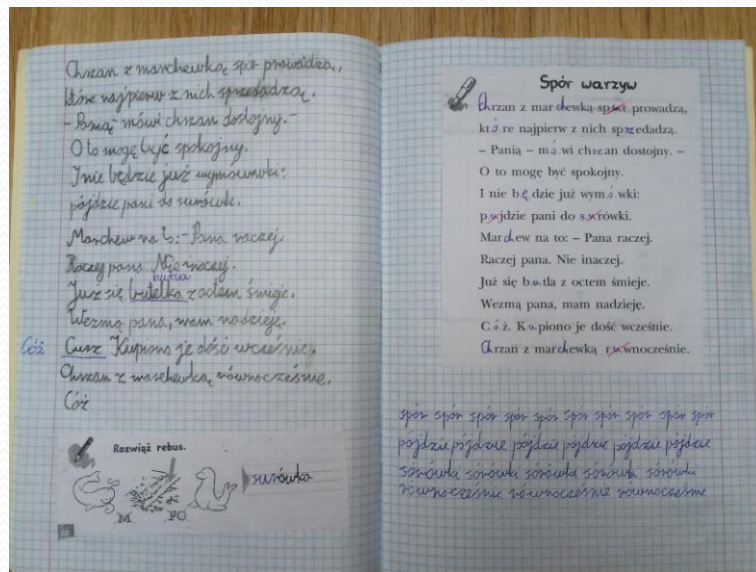 Chrzan z marchewką spór prowadzą,
które najpierw z nich sprzedadzą.
- Panią - mówi chrzan dostojny. -
O to mogę być spokojny.
I nie będzie już wymówki:
pójdzie pani do surówki.
Marchew na to: - Pana raczej.
Raczej pana. Nie inaczej.
butla
Już się butelka z octem śmieje.
Wezmą pana, mam nadzieję.
Cóż Cusz Kupiono je dość wcześnie.
Chrzan z marchewką równocześnie.
Cóż
Rozwiąż rebus.
surówka
M PO
Spór warzyw
Chrzan z marchewką spur prowadzą,
które najpierw z nich sprzedadzą.
– Panią – mówi chrzan dostojny. –
O to mogę być spokojny.
I nie będzie już wymówki:
pujdzie pani do surówki.
Marchew na to: – Pana raczej.
Raczej pana. Nie inaczej.
Już się butla z octem śmieje.
Wezmą pana, mam nadzieję.
Cóż. Kupiono je dość wcześnie.
Chrzan z marchewką ruwnocześnie.
spór spór spór spór spór spór spór spór spór spór
pójdzie pójdzie pójdzie pójdzie pójdzie pójdzie
sorówka sorówka sorówka sorówka sorówka
równocześnie równocześnie równocześnie